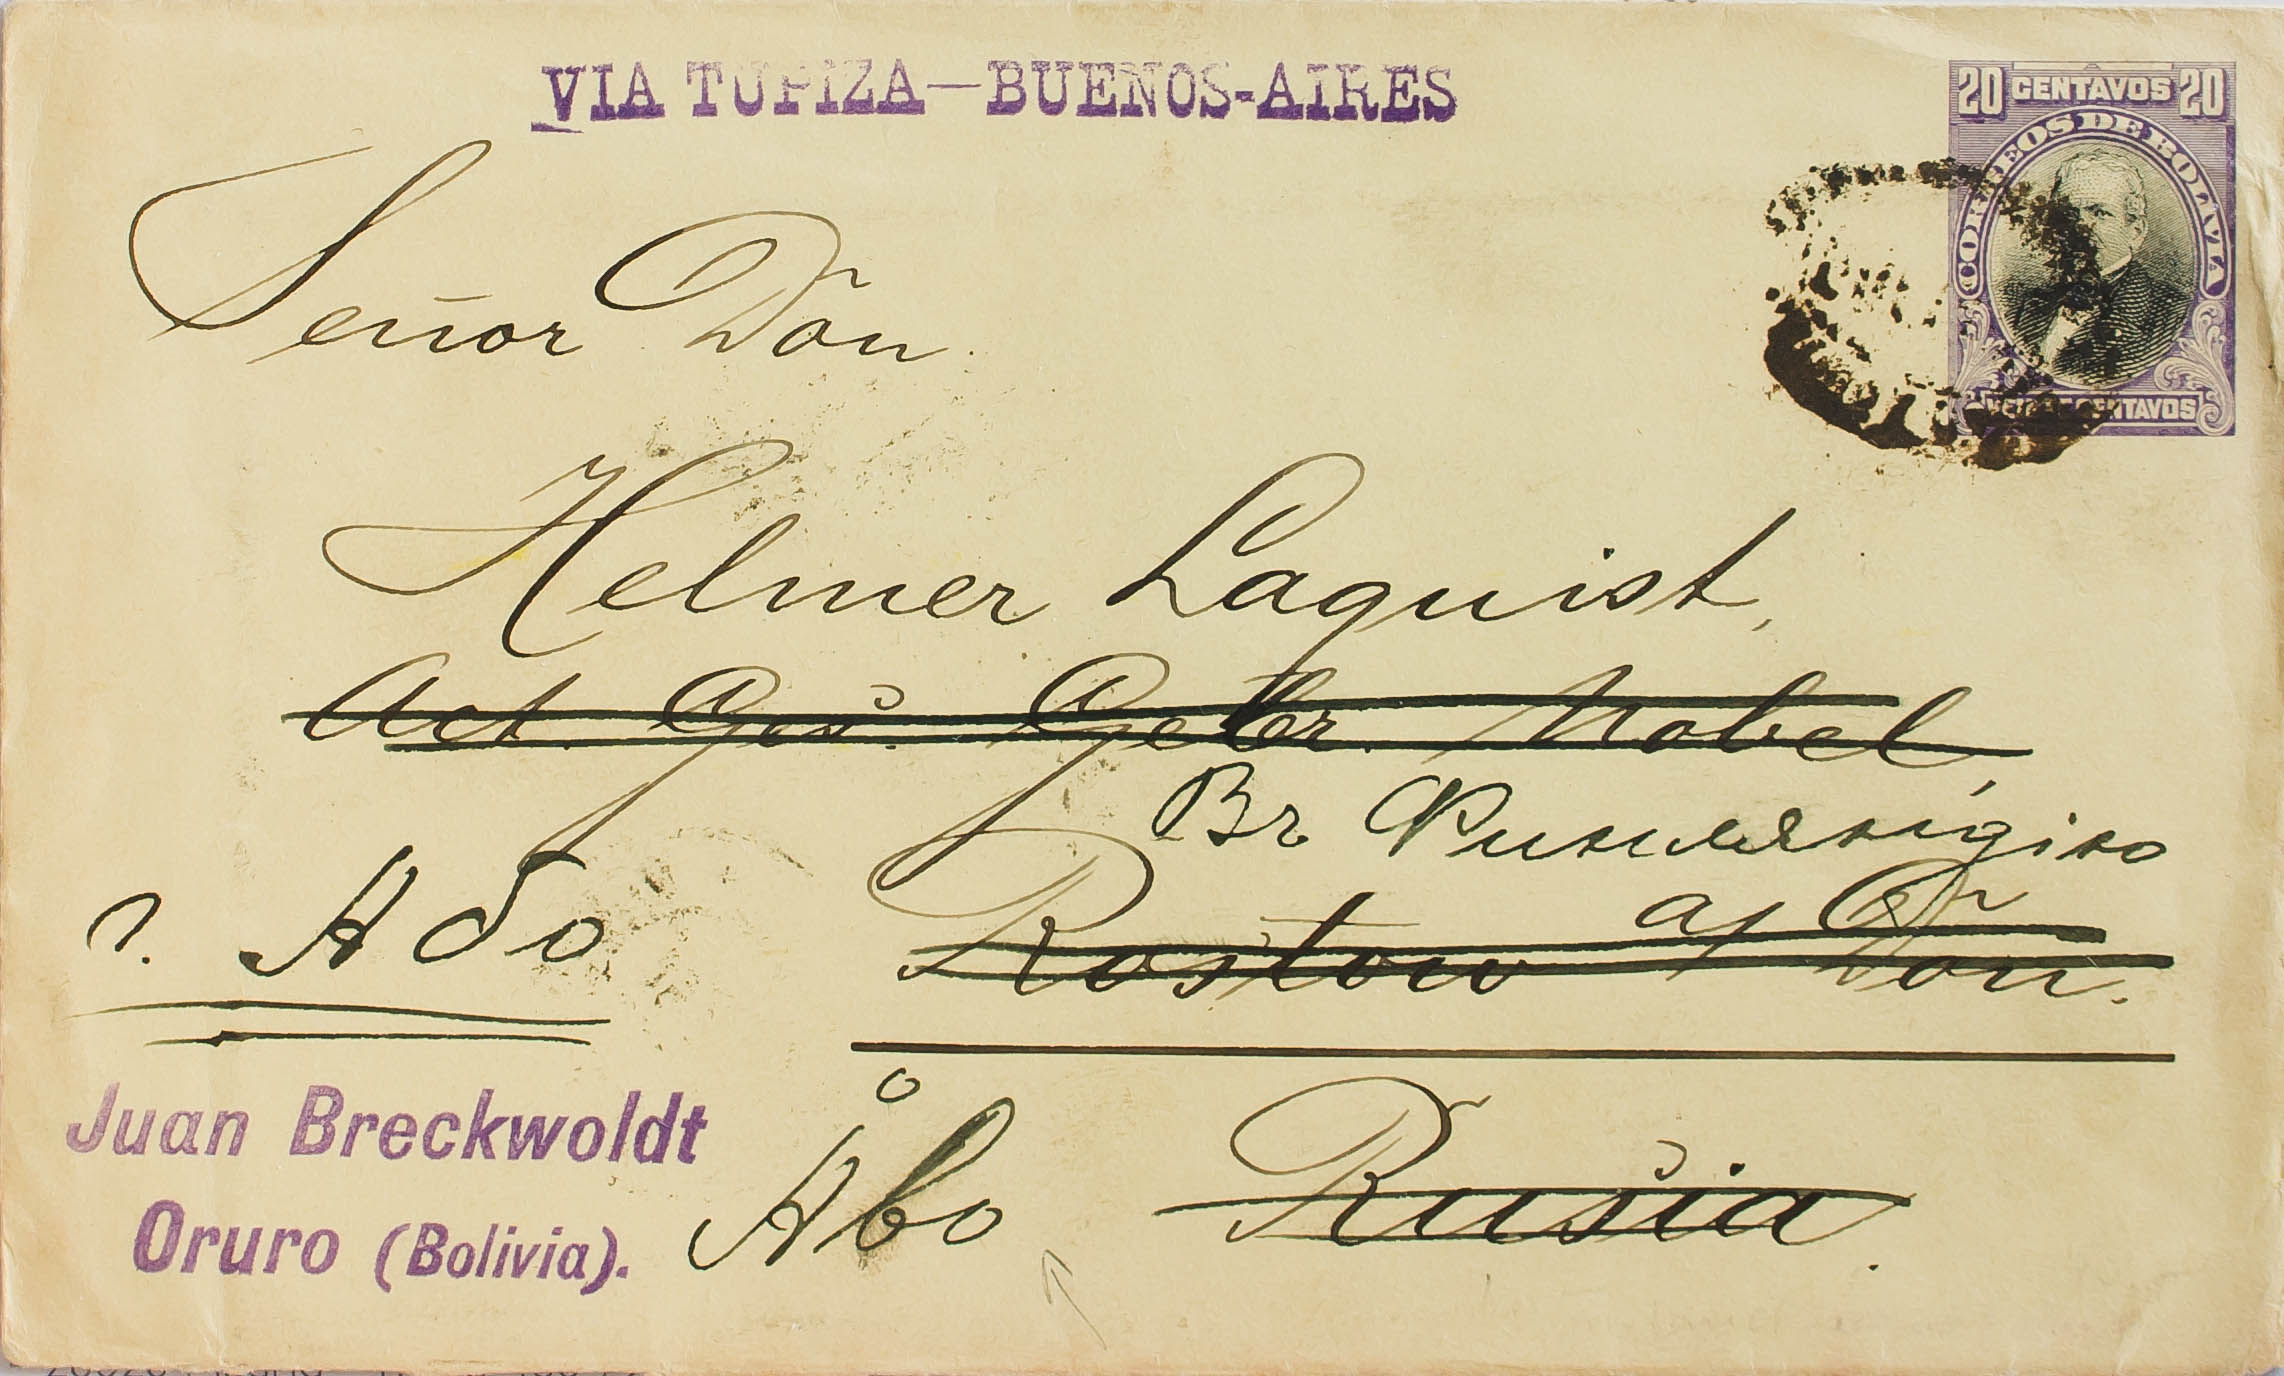 VIA TUPIZA—BUENOS-AIRES
20 CENTAVOS 20
CORREOS DE BOLIVIA
VEINTE CENTAVOS
Señor Don
Helmer Laquist,
Act. Ges. Gebr. Nobel,
Вг Финляндію
г. Або
Rostow a/ Don.
Åbo
Rusia.
Juan Breckwoldt
Oruro (Bolivia).